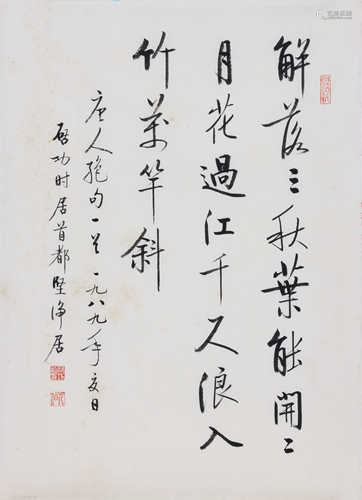 解落三秋葉能開二
月花過江千尺浪入
竹萬竿斜
唐人絕句一首 一九八九年夏日
啟功时居首都堅净居